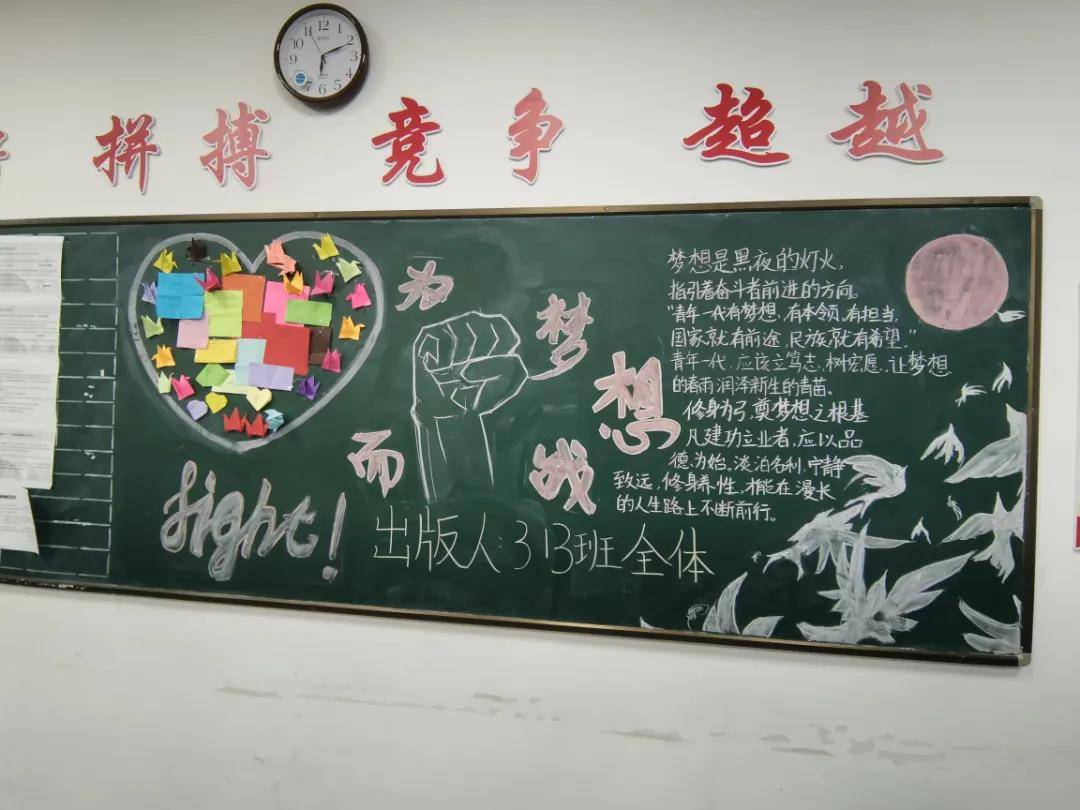 拼搏 竞争 超越
12
11
10
9
8
7
6
5
4
3
2
1
为梦想而战
fight!
出版人:313班全体
梦想是黑夜的灯火,
指引着奋斗者前进的方向。
"青年一代有梦想,有本领,有担当,
国家就有前途,民族就有希望."
青年一代,应该立笃志,树宏愿,让梦想
的春雨润泽新生的青苗。
修身为弓,奠梦想之根基
凡建功立业者,应以品
德为始,淡泊名利,宁静
致远,修身养性,才能在漫长
的人生路上不断前行。